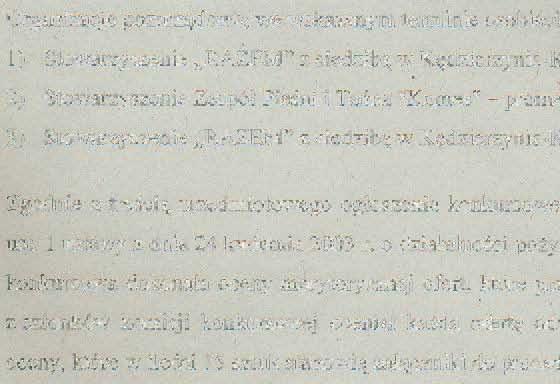 Organizacje pozarządowe we wskazanym terminie
1) Stowarzyszenie „RAZEM” z siedzibą w Kędzierzynie-K
2) Stowarzyszenie Zespół Pieśni i Tańca
3) Stowarzyszenie „RAZEM” z siedzibą w Kędzierzynie-K
Zgodnie z treścią przedmiotowego ogłoszenia
ust 1 ustawy z dnia 24 kwietnia 2003 r. o działalności poży
konkursowa dokonała oceny merytorycznej ofert, które
z członków komisji konkursowej oceniał każdą ofertę
oceny, które w ilości 15 sztuk stanowią załączniki do